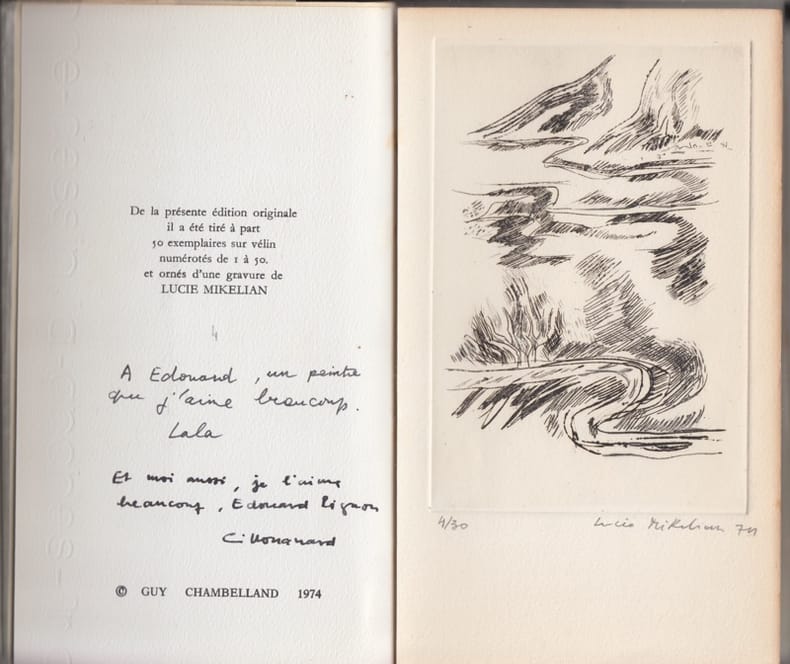 De la présente édition originale
il a été tiré à part
50 exemplaires sur vélin
numérotés de 1 à 50.
et ornés d'une gravure de
LUCIE MIKELIAN
4
A Edouard, un peintre
que j'aime beaucoup.
Lala
Et moi aussi, je l'aime
beaucoup, Edouard
© GUY CHAMBELLAND 1974
4/30
Lucie Mikelian 74